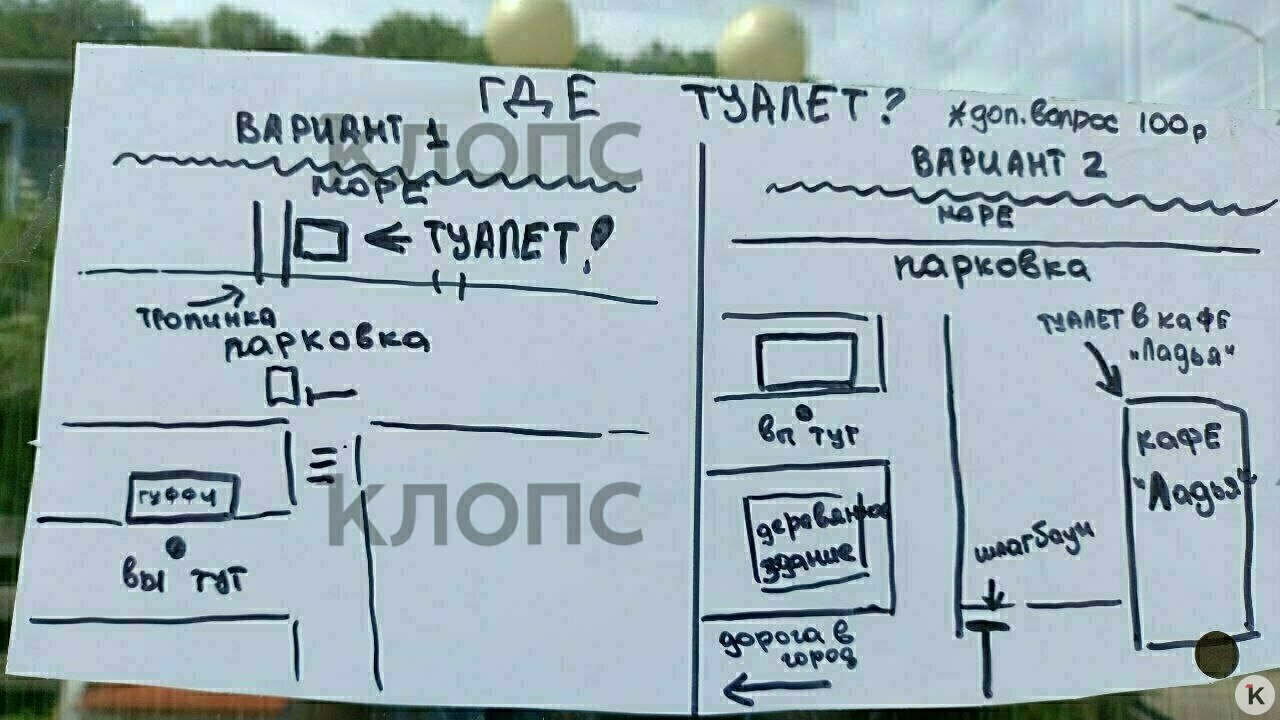 ГДЕ ТУАЛЕТ?
*доп. вопрос 100р
ВАРИАНТ 1
МОРЕ
ТУАЛЕТ!
ТРОПИНКА
ПАРКОВКА
ГУФФИ
ВЫ ТУТ
ВАРИАНТ 2
МОРЕ
ПАРКОВКА
ТУАЛЕТ В КАФЕ
"Ладья"
ВЫ ТУТ
КАФЕ
"Ладья"
деревянное
здание
шлагбаум
дорога в
город
КЛОПС
КЛОПС
K